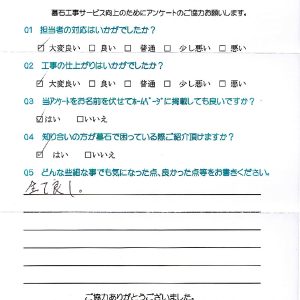 墓石工事サービス向上のためにアンケートのご協力お願いします。
Q1 担当者の対応はいかがでしたか?
☑ 大変良い □ 良い □ 普通 □ 少し悪い □ 悪い
Q2 工事の仕上がりはいかがでしたか?
☑ 大変良い □ 良い □ 普通 □ 少し悪い □ 悪い
Q3 当アンケートをお名前を伏せてホームページに掲載しても良いですか?
☑はい □いいえ
Q4 知り合いの方が墓石で困っている際ご紹介頂けますか?
☑ はい □ いいえ
Q5 どんな些細な事でも気になった点、良かった点等をお書きください。
全て良し。
ご協力ありがとうございました。